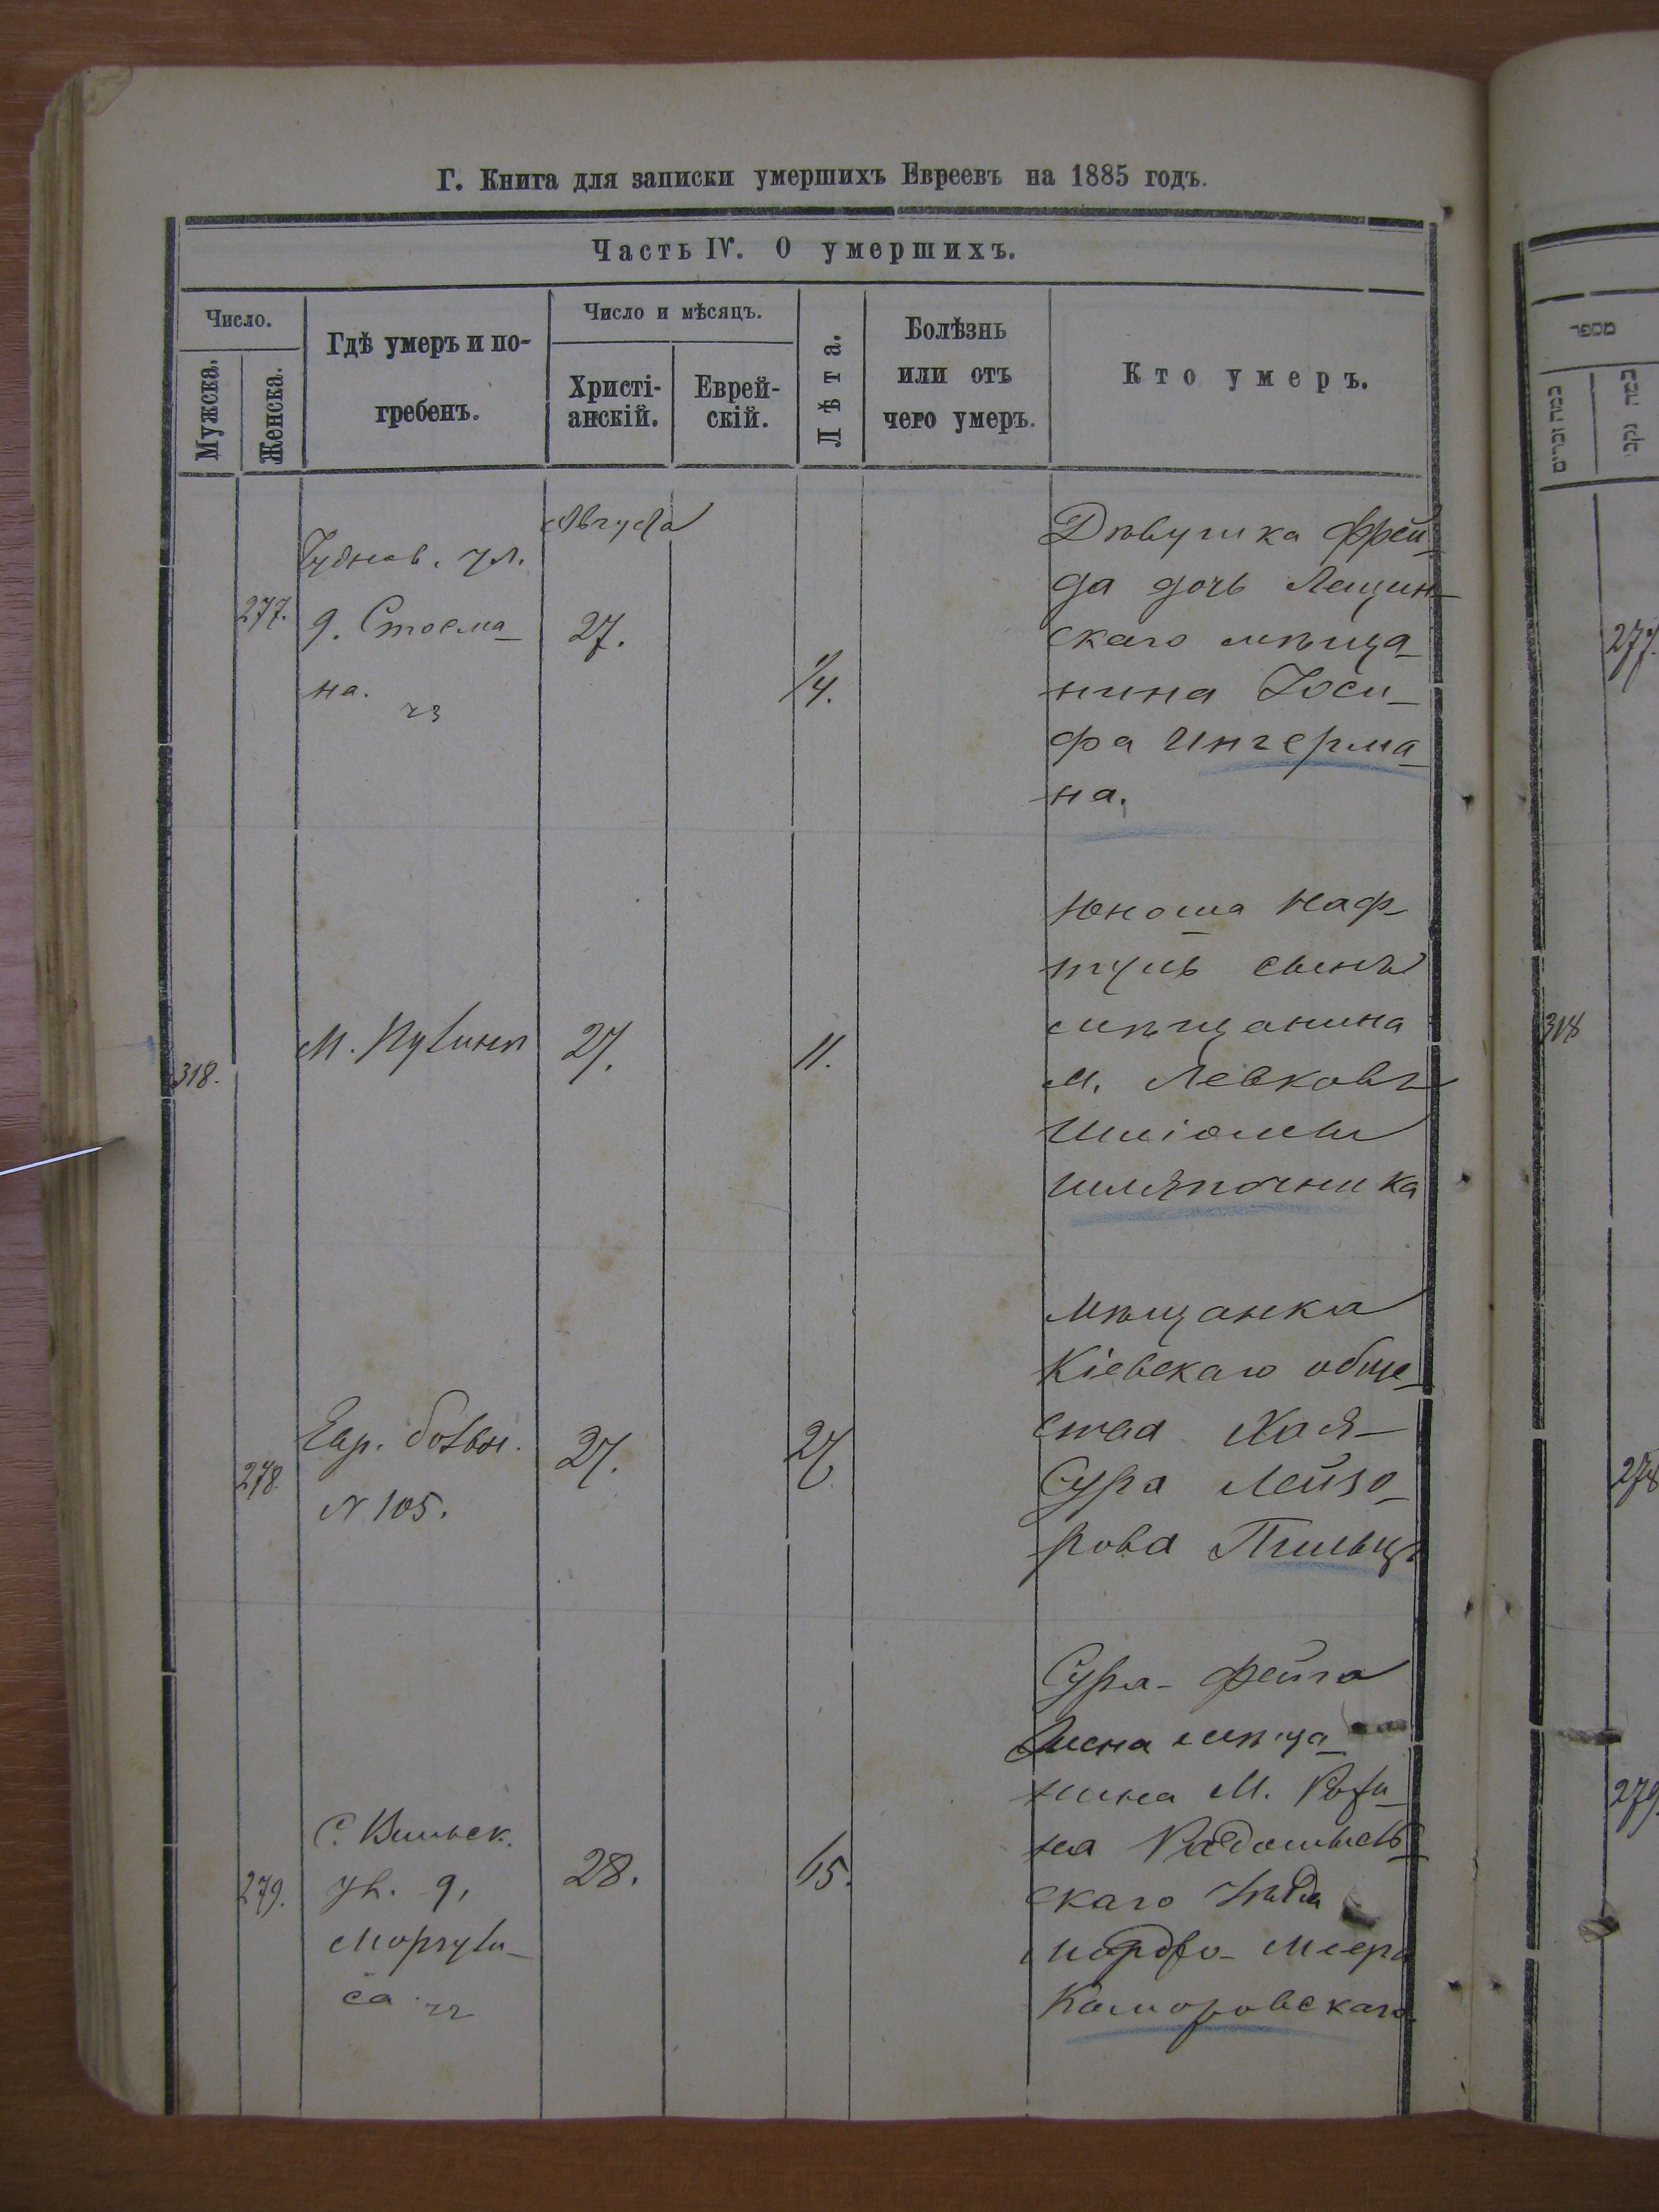 Г. Книга для записки умершихъ Евреевъ на 1885 годъ.
Часть IV. О умершихъ.
Число.
Мужска.
Женска.
Гдѣ умеръ и по-
гребенъ.
Число и мѣсяцъ.
Христі-
анскій.
Еврей-
скій.
Лѣта.
Болѣзнь
или отъ
чего умеръ.
Кто умеръ.
277.
Чуднов. ул.
д. Стосма-
на.
Августа
27.
1/4.
Дѣвушка Фрей-
да дочь Лещин-
скаго мѣща-
нина Іоси-
фа Ингерма-
на.
318.
М.
27.
11.
Юноша Наф-
туль сынъ
мѣщанина
м. Левковъ
Шліомы
Шляпочника
278.
Евр.
N 105.
27.
27
Мѣщанка
Кіевскаго обще-
ства Хая-
Сура Лейзо-
рова
279.
С. Вильск.
ул. д.
са
28.
65.
Сура-Фейга
Жена мѣща-
нина М.
на Радомысль-
скаго уѣзда
Мордко-Меера
Каморовскаго
מספר
כמה זכרים
כמה נקבי
277.
318
278
279.